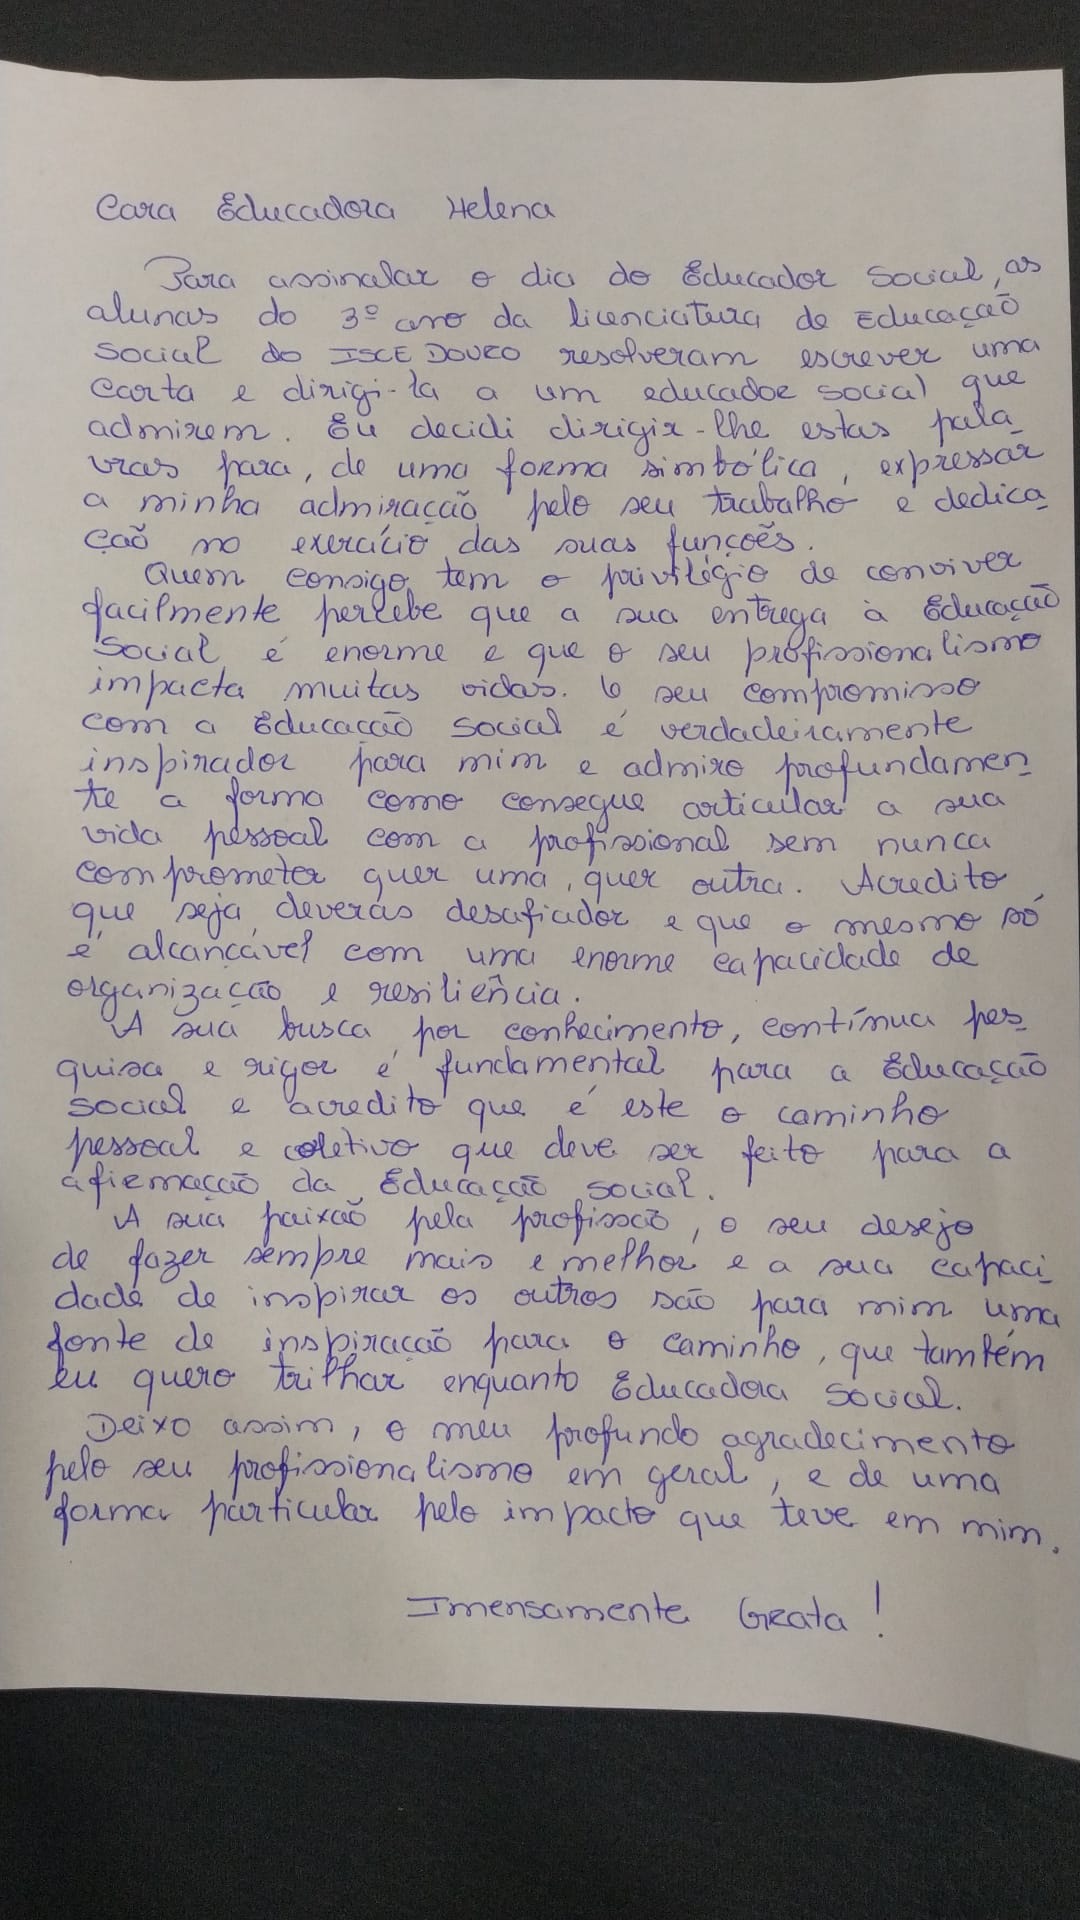 Cara Educadora Helena
Para assinalar o dia do Educador Social, as
alunas do 3º ano da licenciatura de Educação
Social do ISCE DOURO resolveram escrever uma
carta e dirigi-la a um educador social que
admirem. Eu decidi dirigir-lhe estas pala-
vras para, de uma forma simbólica, expressar
a minha admiração pelo seu trabalho e dedica-
ção no exercício das suas funções.
Quem consigo tem o privilégio de conviver
facilmente percebe que a sua entrega à Educação
Social é enorme e que o seu profissionalismo
impacta muitas vidas. O seu compromisso
com a Educação Social é verdadeiramente
inspirador para mim e admiro profundamen-
te a forma como consegue articular a sua
vida pessoal com a profissional sem nunca
comprometer quer uma, quer outra. Acredito
que seja deveras desafiador e que o mesmo só
é alcançável com uma enorme capacidade de
organização e resiliência.
A sua busca por conhecimento, contínua pes-
quisa e rigor é fundamental para a Educação
Social e acredito que é este o caminho
pessoal e coletivo que deve ser feito para a
afirmação da Educação Social.
A sua paixão pela profissão, o seu desejo
de fazer sempre mais e melhor e a sua capaci-
dade de inspirar os outros são para mim uma
fonte de inspiração para o caminho, que também
eu quero trilhar enquanto Educadora Social.
Deixo assim, o meu profundo agradecimento
pelo seu profissionalismo em geral, e de uma
forma particular pelo impacto que teve em mim.
Imensamente Grata!